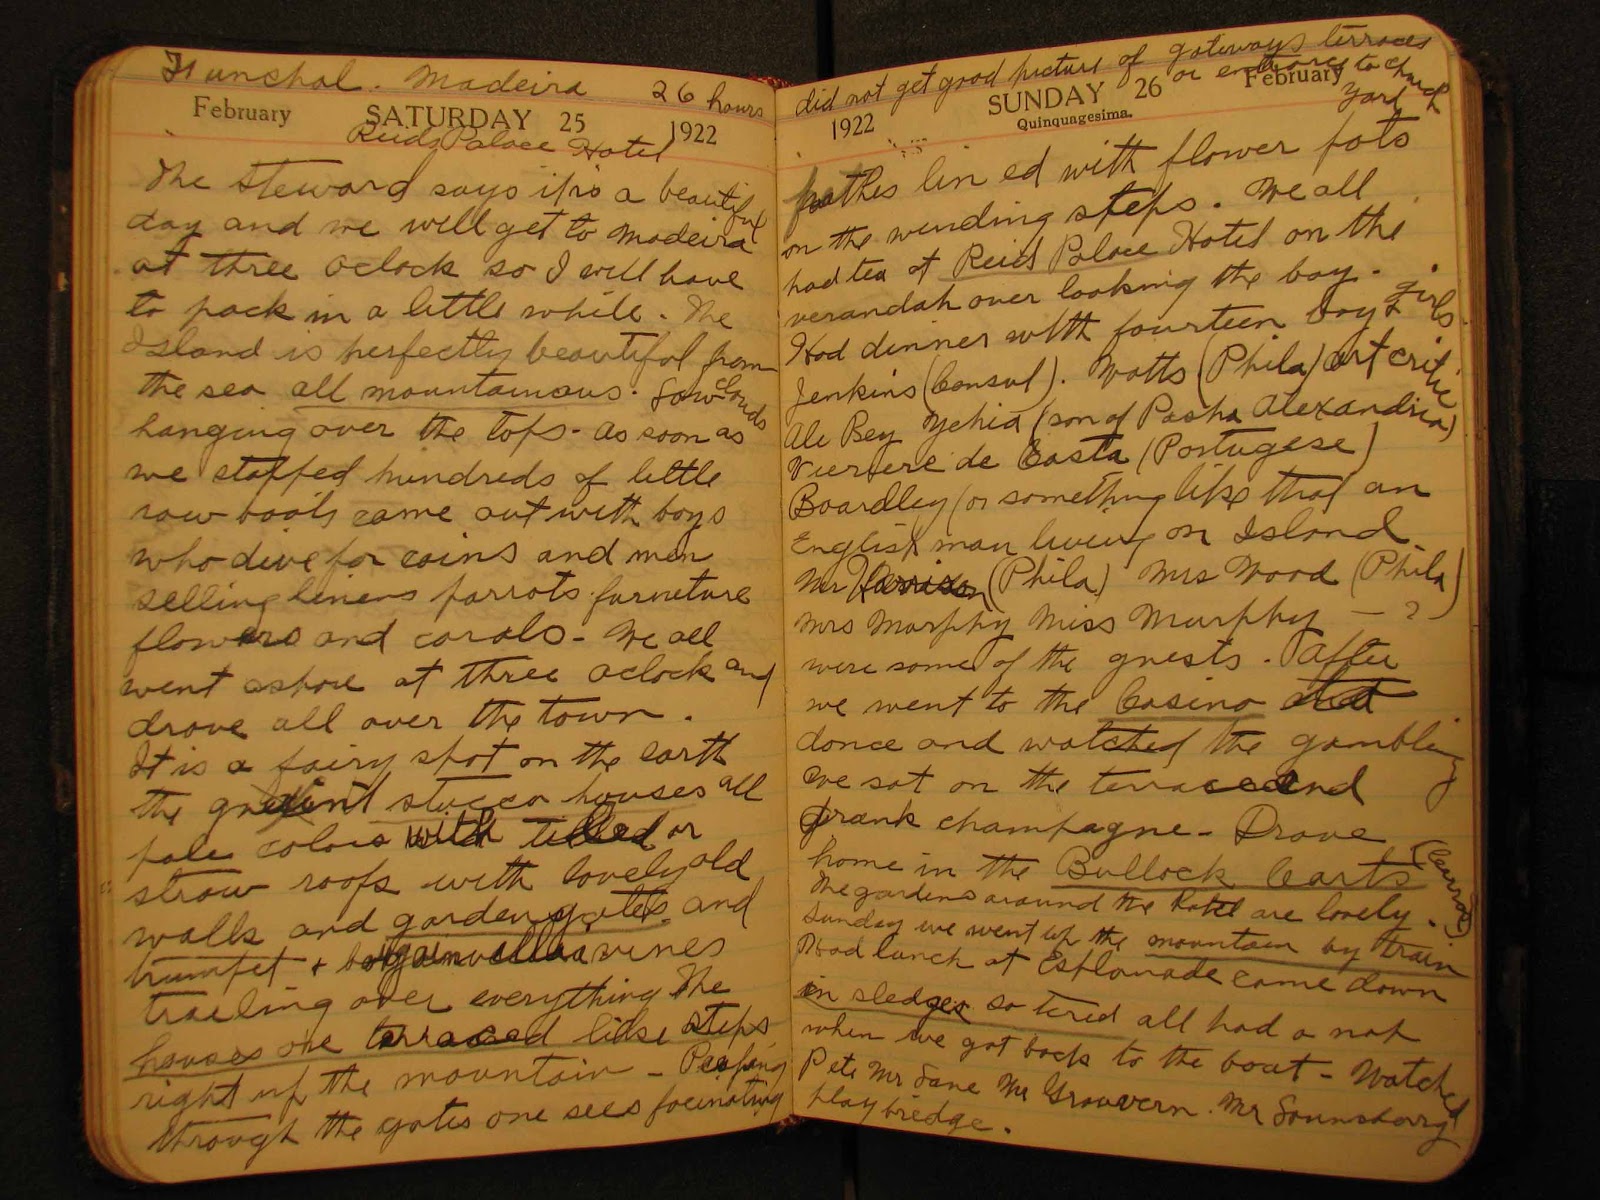 Funchal. Madeira 26 hours
February SATURDAY 25 1922
Reids Palace Hotel
The steward says it is a beautiful
day and we will get to Madeira
at three oclock so I will have
to pack in a little while. The
Island is perfectly beautiful from
the sea all mountainous. Low clouds
hanging over the tops. As soon as
we stopped hundreds of little
row boats came out with boys
who dive for coins and men
selling linens parrots furniture
flowers and corals - We all
went ashore at three oclock and
drove all over the town.
It is a fairy spot on the earth
the stucco houses all
pale colors with tiled or
straw roofs with lovely old
walls and garden gates and
trumpet + bougainvillea vines
trailing over everything The
houses are terraced like steps
right up the mountain - Peeping
through the gates one sees facinating
did not get good picture of gateways terraces
or entrances to church
yard
1922 SUNDAY 26 February
Quinquagesima.
pathes lin ed with flower pots
on the winding steps. We all
had tea at Reids Palace Hotel on the
verandah over looking the bay.
Had dinner with fourteen boys & girls
Jenkins (Consul). Watts (Phila) art critic
Ali Bey Yehia (son of Pasha Alexandria)
de Costa (Portugese)
Boardley (or something like that an
English man living on Island
Mr Harrison (Phila) Mrs Wood (Phila)
Mrs Murphy Miss Murphy — ?
were some of the guests. After
we went to the Casino and
dance and watched the gambling
We sat on the terrace and
drank champagne - Drove
home in the Bullock Carts
The gardens around the hotel are lovely.
Sunday we went up the mountain by train
Had lunch at Esplanade came down
in sledges so tired all had a nap
when we got back to the boat - Watched
Pete Mr Lane Mr Mr
play bridge.